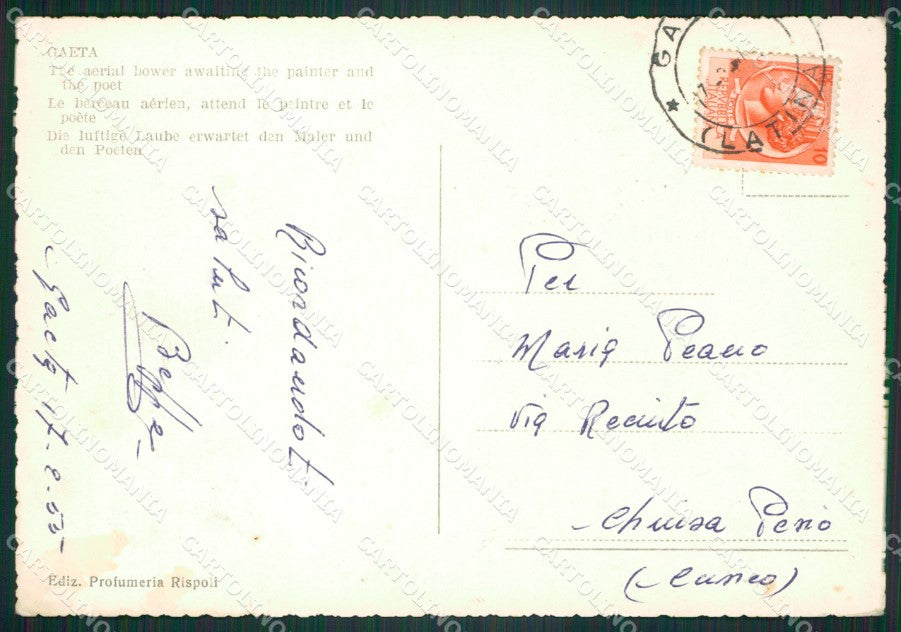 GAETA
The aerial bower awaiting the painter and
the poet
Le berceau aérien, attend le peintre et le
poète
Die luftige Laube erwartet den Maler und
den Poeten
Ricordandoti
saluti.
Beppe
Gaeta 17.2.55
Ediz. Profumeria Rispoli
GA
(LATINA
10
Per
Maria Peano
Via Recinto
Chiusa Pesio
(Cuneo)
CARTOLINOMANIA